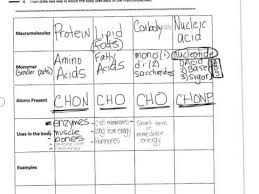 4. I can state one way in which the body uses each of the macromolecules
Macromolecules Protein Lipid (fats) Carbohy Nucleic acid
Monomer (smaller parts) Amino Acids Fatty Acids mono(1) di(2) saccharides nucleotide 1) Acid 2) Base 3) Sugar
Atoms Present CHON CHO CHO CHONP
Uses in the body enzymes muscle bones cell membranes long term energy hormones Short term or immediate energy
Examples